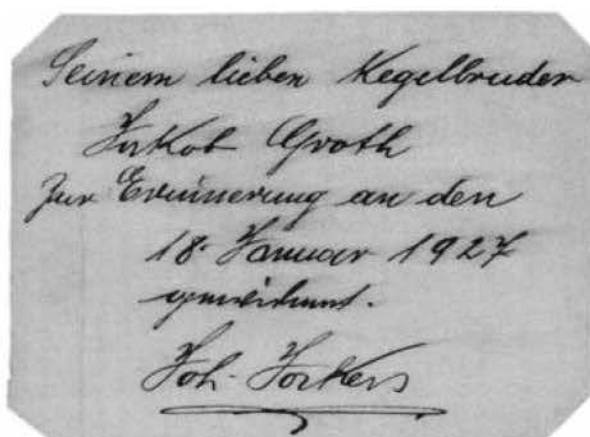 Seinem lieben Kegelbruder
Jakob Groth
Zur Erinnerung an den
18. Januar 1927
gewidmet.
Joh. Jorkers